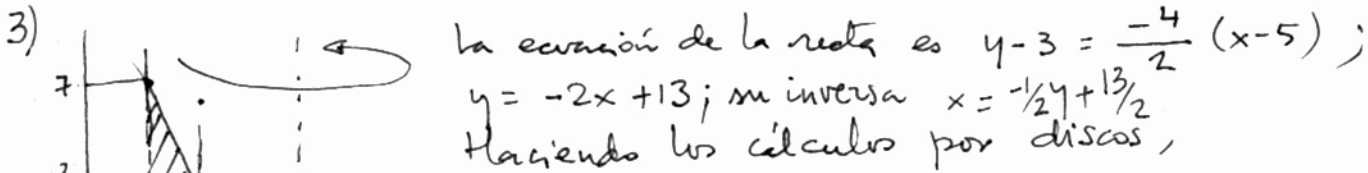 3)
La ecuación de la recta es y-3 = -4/2 (x-5) ;
7
y = -2x +13 ; su inversa x = -1/2y + 13/2
Haciendo los cálculos por discos,